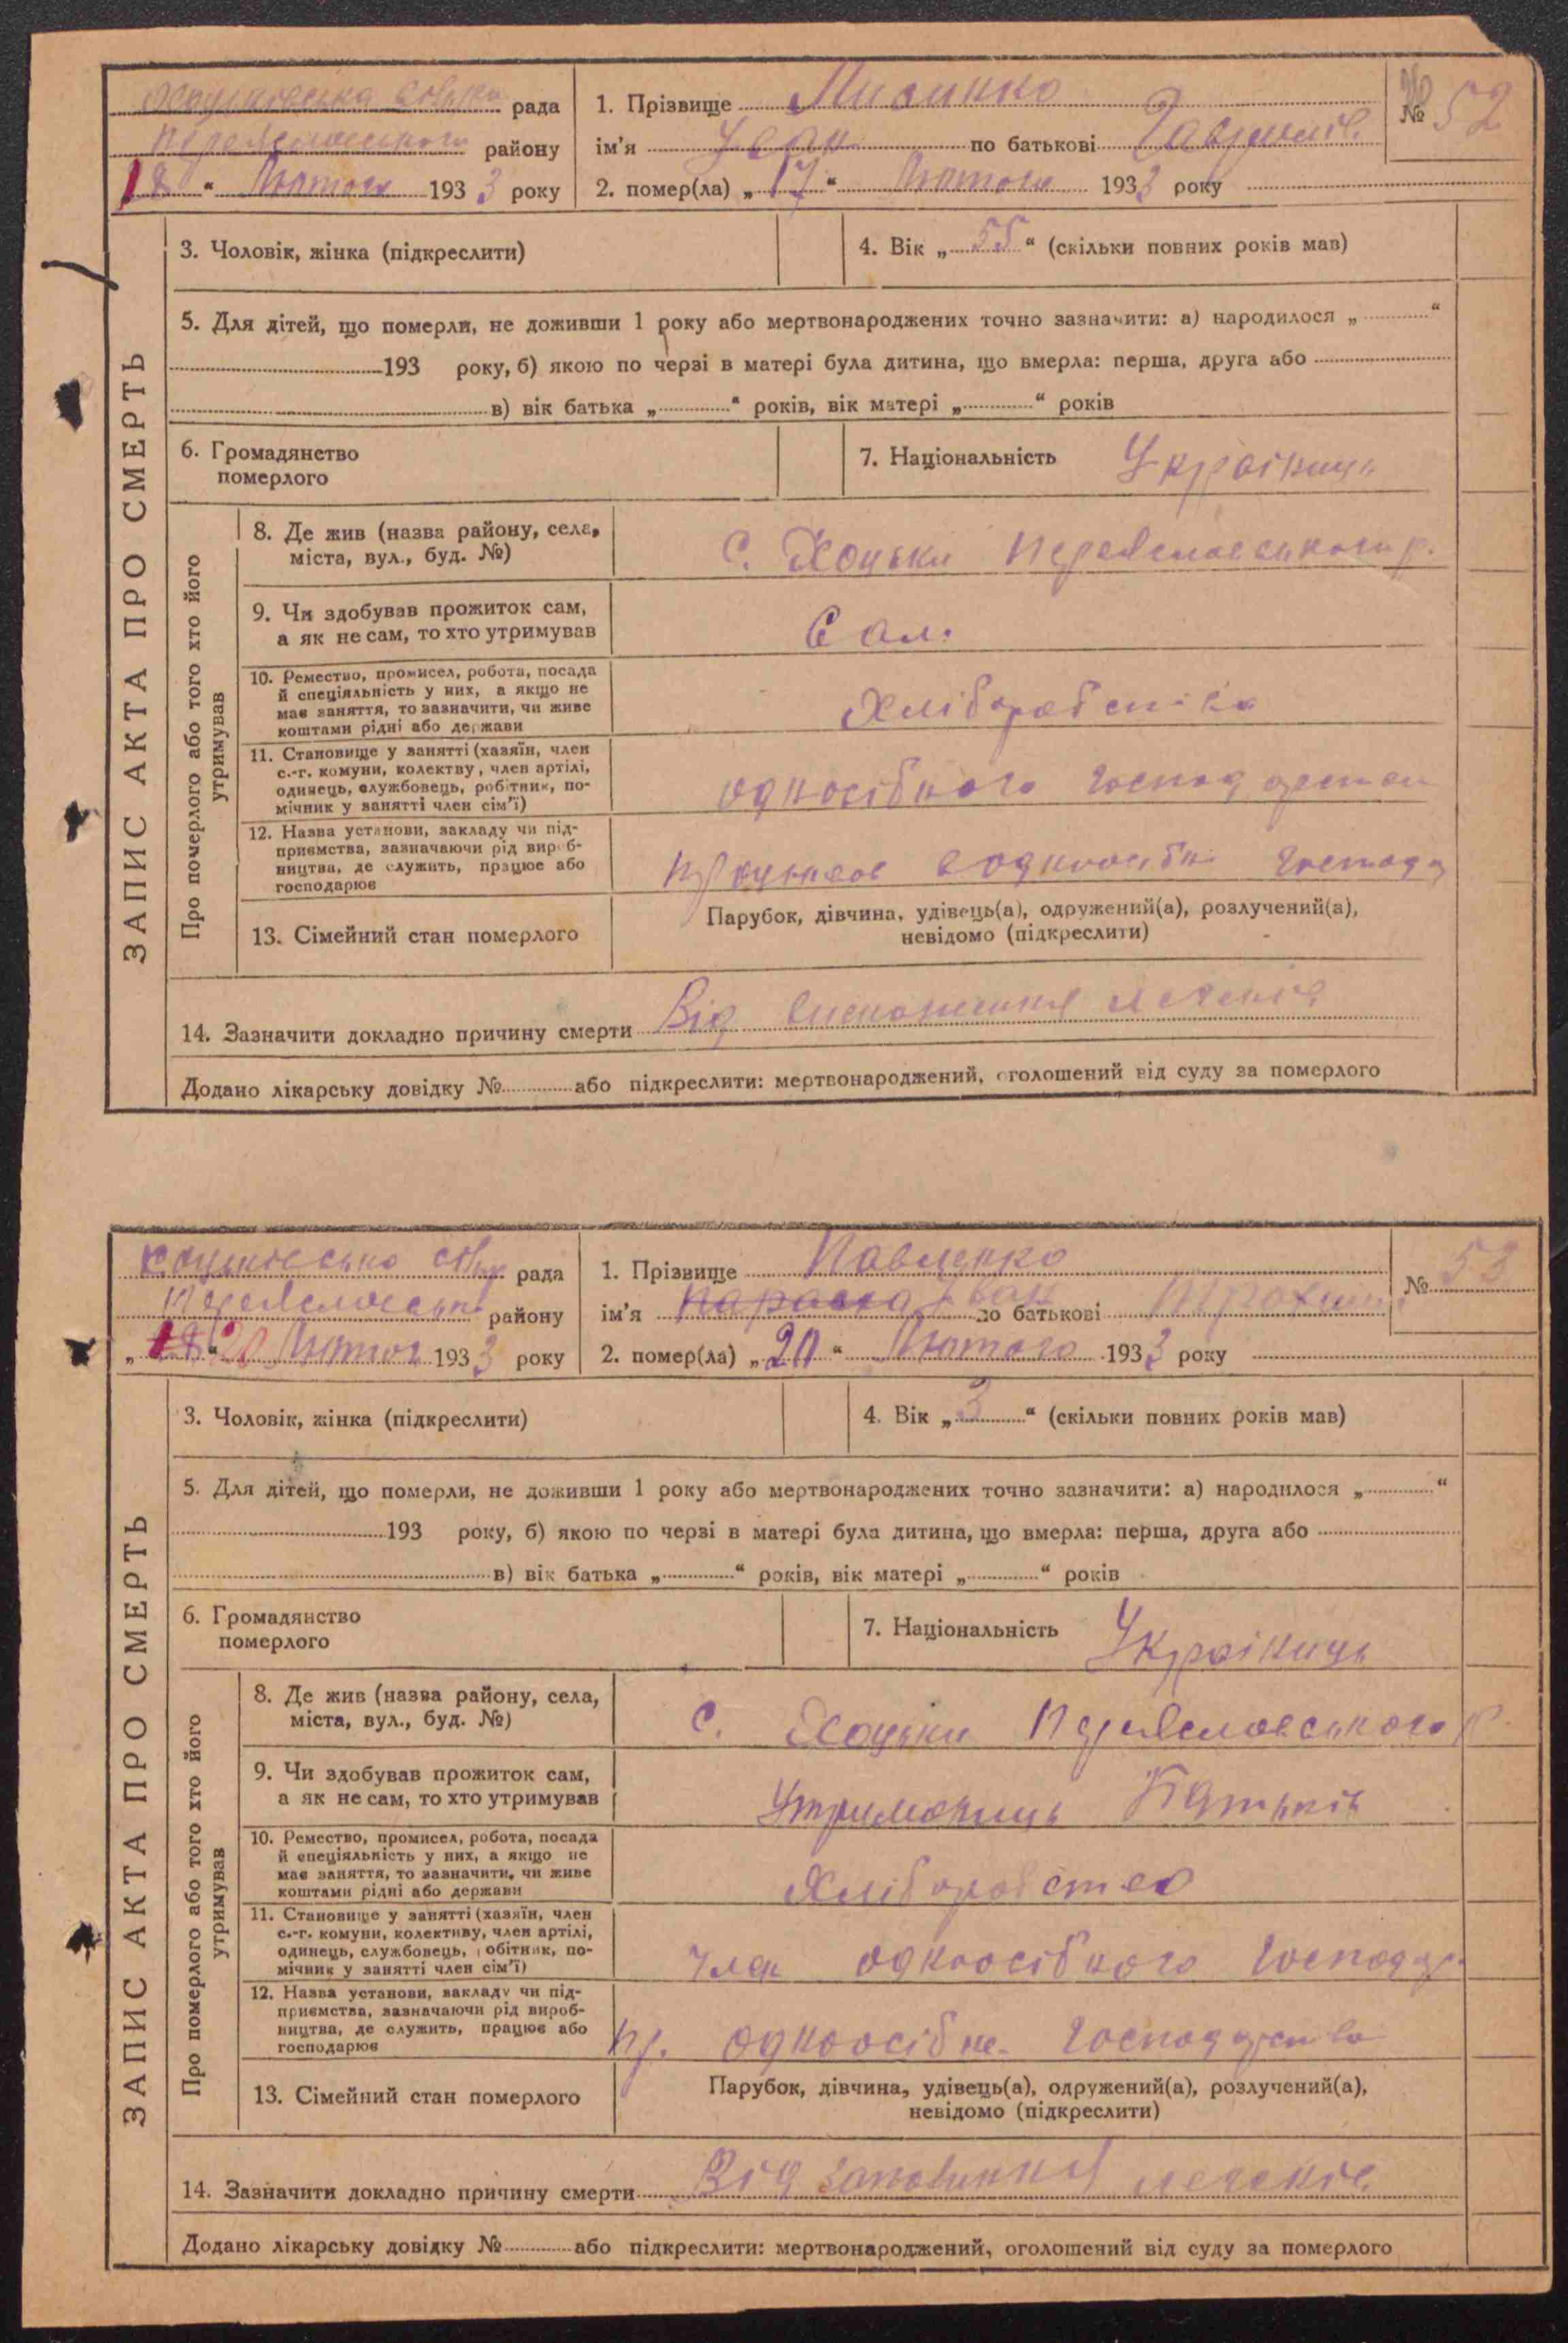 ЗАПИС АКТА ПРО СМЕРТЬ
рада
району
18 " Лютого 1933 року
1. Прізвище
ім'я Іван по батькові
№ 52
2. помер(ла) „ 17 " Лютого 1933 року
3. Чоловік, жінка (підкреслити)
4. Вік „ 55 " (скільки повних років мав)
5. Для дітей, що померли, не доживши 1 року або мертвонароджених точно зазначити: а) народилося „ "
193 року, б) якою по черзі в матері була дитина, що вмерла: перша, друга або
в) вік батька „ " років, вік матері „ " років
6. Громадянство
померлого
7. Національність Українець
Про померлого або того хто його
утримував
8. Де жив (назва району, села,
міста, вул., буд. №)
с. Хоцьки Переяславського р.
9. Чи здобував прожиток сам,
а як не сам, то хто утримував
Сам.
10. Ремество, промисел, робота, посада
й спеціяльність у них, а якщо не
має заняття, то зазначити, чи живе
коштами рідні або держави
Хліборобство
11. Становище у занятті (хазяїн, член
с.-г. комуни, колектву, член артілі,
одинець, службовець, робітник, по-
мічник у занятті член сім'ї)
12. Назва установи, закладу чи під-
приємства, зазначаючи рід вироб-
ництва, де служить, працює або
господарює
13. Сімейний стан померлого
Парубок, дівчина, удівець(а), одружений(а), розлучений(а),
невідомо (підкреслити)
14. Зазначити докладно причину смерти Від легенів
Додано лікарську довідку № або підкреслити: мертвонароджений, оголошений від суду за померлого
ЗАПИС АКТА ПРО СМЕРТЬ
рада
району
„ 18 " 20 Лютого 1933 року
1. Прізвище Павленко
ім'я Параска Іван по батькові
№ 53
2. помер(ла) „ 20 " Лютого 1933 року
3. Чоловік, жінка (підкреслити)
4. Вік „ 3 " (скільки повних років мав)
5. Для дітей, що померли, не доживши 1 року або мертвонароджених точно зазначити: а) народилося „ "
193 року, б) якою по черзі в матері була дитина, що вмерла: перша, друга або
в) вік батька „ " років, вік матері „ " років
6. Громадянство
померлого
7. Національність Українець
Про померлого або того хто його
утримував
8. Де жив (назва району, села,
міста, вул., буд. №)
с. Хоцьки Переяславського р.
9. Чи здобував прожиток сам,
а як не сам, то хто утримував
Утриманець Батьків
10. Ремество, промисел, робота, посада
й спеціяльність у них, а якщо не
має заняття, то зазначити, чи живе
коштами рідні або держави
Хліборобство
11. Становище у занятті (хазяїн, член
с.-г. комуни, колективу, член артілі,
одинець, службовець, робітник, по-
мічник у занятті член сім'ї)
член одноосібного господар.
12. Назва установи, закладу чи під-
приємства, зазначаючи рід вироб-
ництва, де служить, працює або
господарює
пр. одноосібне господарство
13. Сімейний стан померлого
Парубок, дівчина, удівець(а), одружений(а), розлучений(а),
невідомо (підкреслити)
14. Зазначити докладно причину смерти Від легенів
Додано лікарську довідку № або підкреслити: мертвонароджений, оголошений від суду за померлого